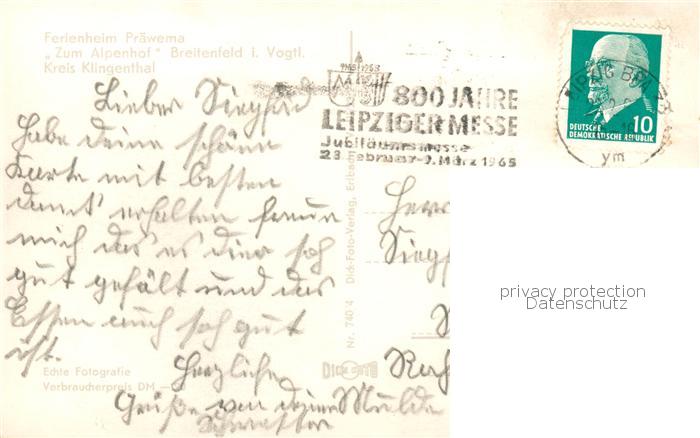 Ferienheim Präwema
„Zum Alpenhof" Breitenfeld i. Vogtl.
Kreis Klingenthal
Lieber Siegfrid
habe deine schöne
Karte mit besten
dank erhalten freue
mich das es dier sch
gut gefält und das
Essen auch sch gut
ist.
Herzliche
Grüße von deiner
Schwester
Echte Fotografie
Verbraucherpreis DM
Nr. 740/4 Dick-Foto-Verlag, Erlbach
DICK FOTO
800 JAHRE
LEIPZIGER MESSE
Jubiläumsmesse
23. Februar - 9. März 1965
LEIPZIG
ym
10
DEUTSCHE
DEMOKRATISCHE REPUBLIK
Herr
Siegf
Mulde
privacy protection
Datenschutz